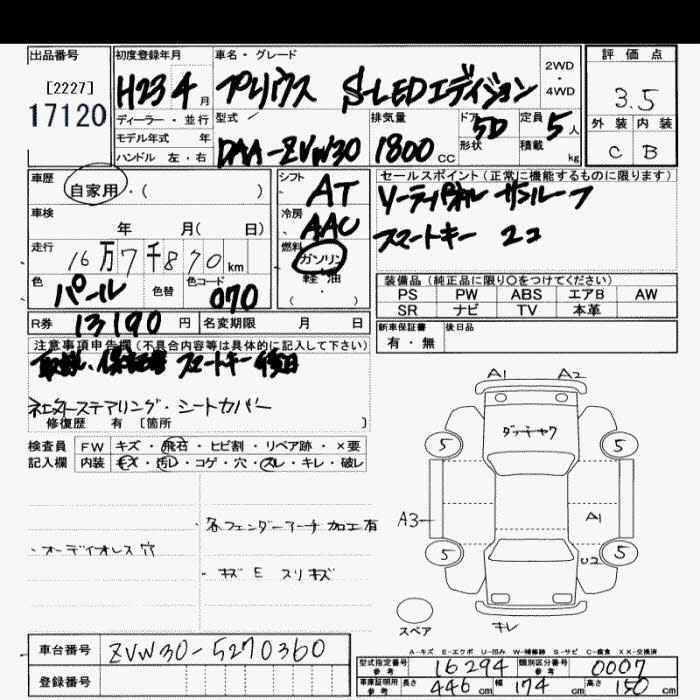 出品番号
[2227]
17120
初度登録年月
H23 4 月
車名・グレード
プリウス S-LEDエディション
2WD
・
4WD
評価点
3.5
外装 内装
C B
ディーラー・並行
モデル年式 年
ハンドル 左・右
型式
DAA-ZVW30
排気量
1800 CC
ドア 5D
形状
定員 5 人
積載 kg
車歴
自家用・( )
車検
年 月( 日)
走行
16万7千870 km
色
パール
色替
色コード
070
シフト
AT
冷房
AAC
燃料
ガソリン
軽油
( )
セールスポイント(正常に機能するものに限ります)
ソーラーパネル サンルーフ
スマートキー 2コ
装備品(純正品に限り○をつけてください)
PS PW ABS エアB AW
SR ナビ TV 本革
新車保証書
有・無
後日品
R券 13190 円
名変期限 月 日
注意事項申告欄(不具合内容等は具体的に記入して下さい)
取説、保証書 スマートキー後日
社外ステアリング・シートカバー
修復歴 有 [箇所 ]
検査員
記入欄
FW キズ・飛石・ヒビ割・リペア跡・×要
内装 キズ・汚レ・コゲ・穴・スレ・キレ・破レ
・オーディオレス穴
・各フェンダーアーチ加工有
・キズ E スリキズ
A1 A2
ダッチャク
5 5
A3 A1
5 5
U2
スペア
キレ
A-キズ E-エクボ U-凹み W-補修跡 S-サビ C-腐食 XX-交換済
車台番号 ZVW30-5270360
登録番号
型式指定番号
参考
16294
類別区分番号
参考
0007
車庫証明用
参考
長さ 446 cm 幅 174 cm 高さ 150 cm